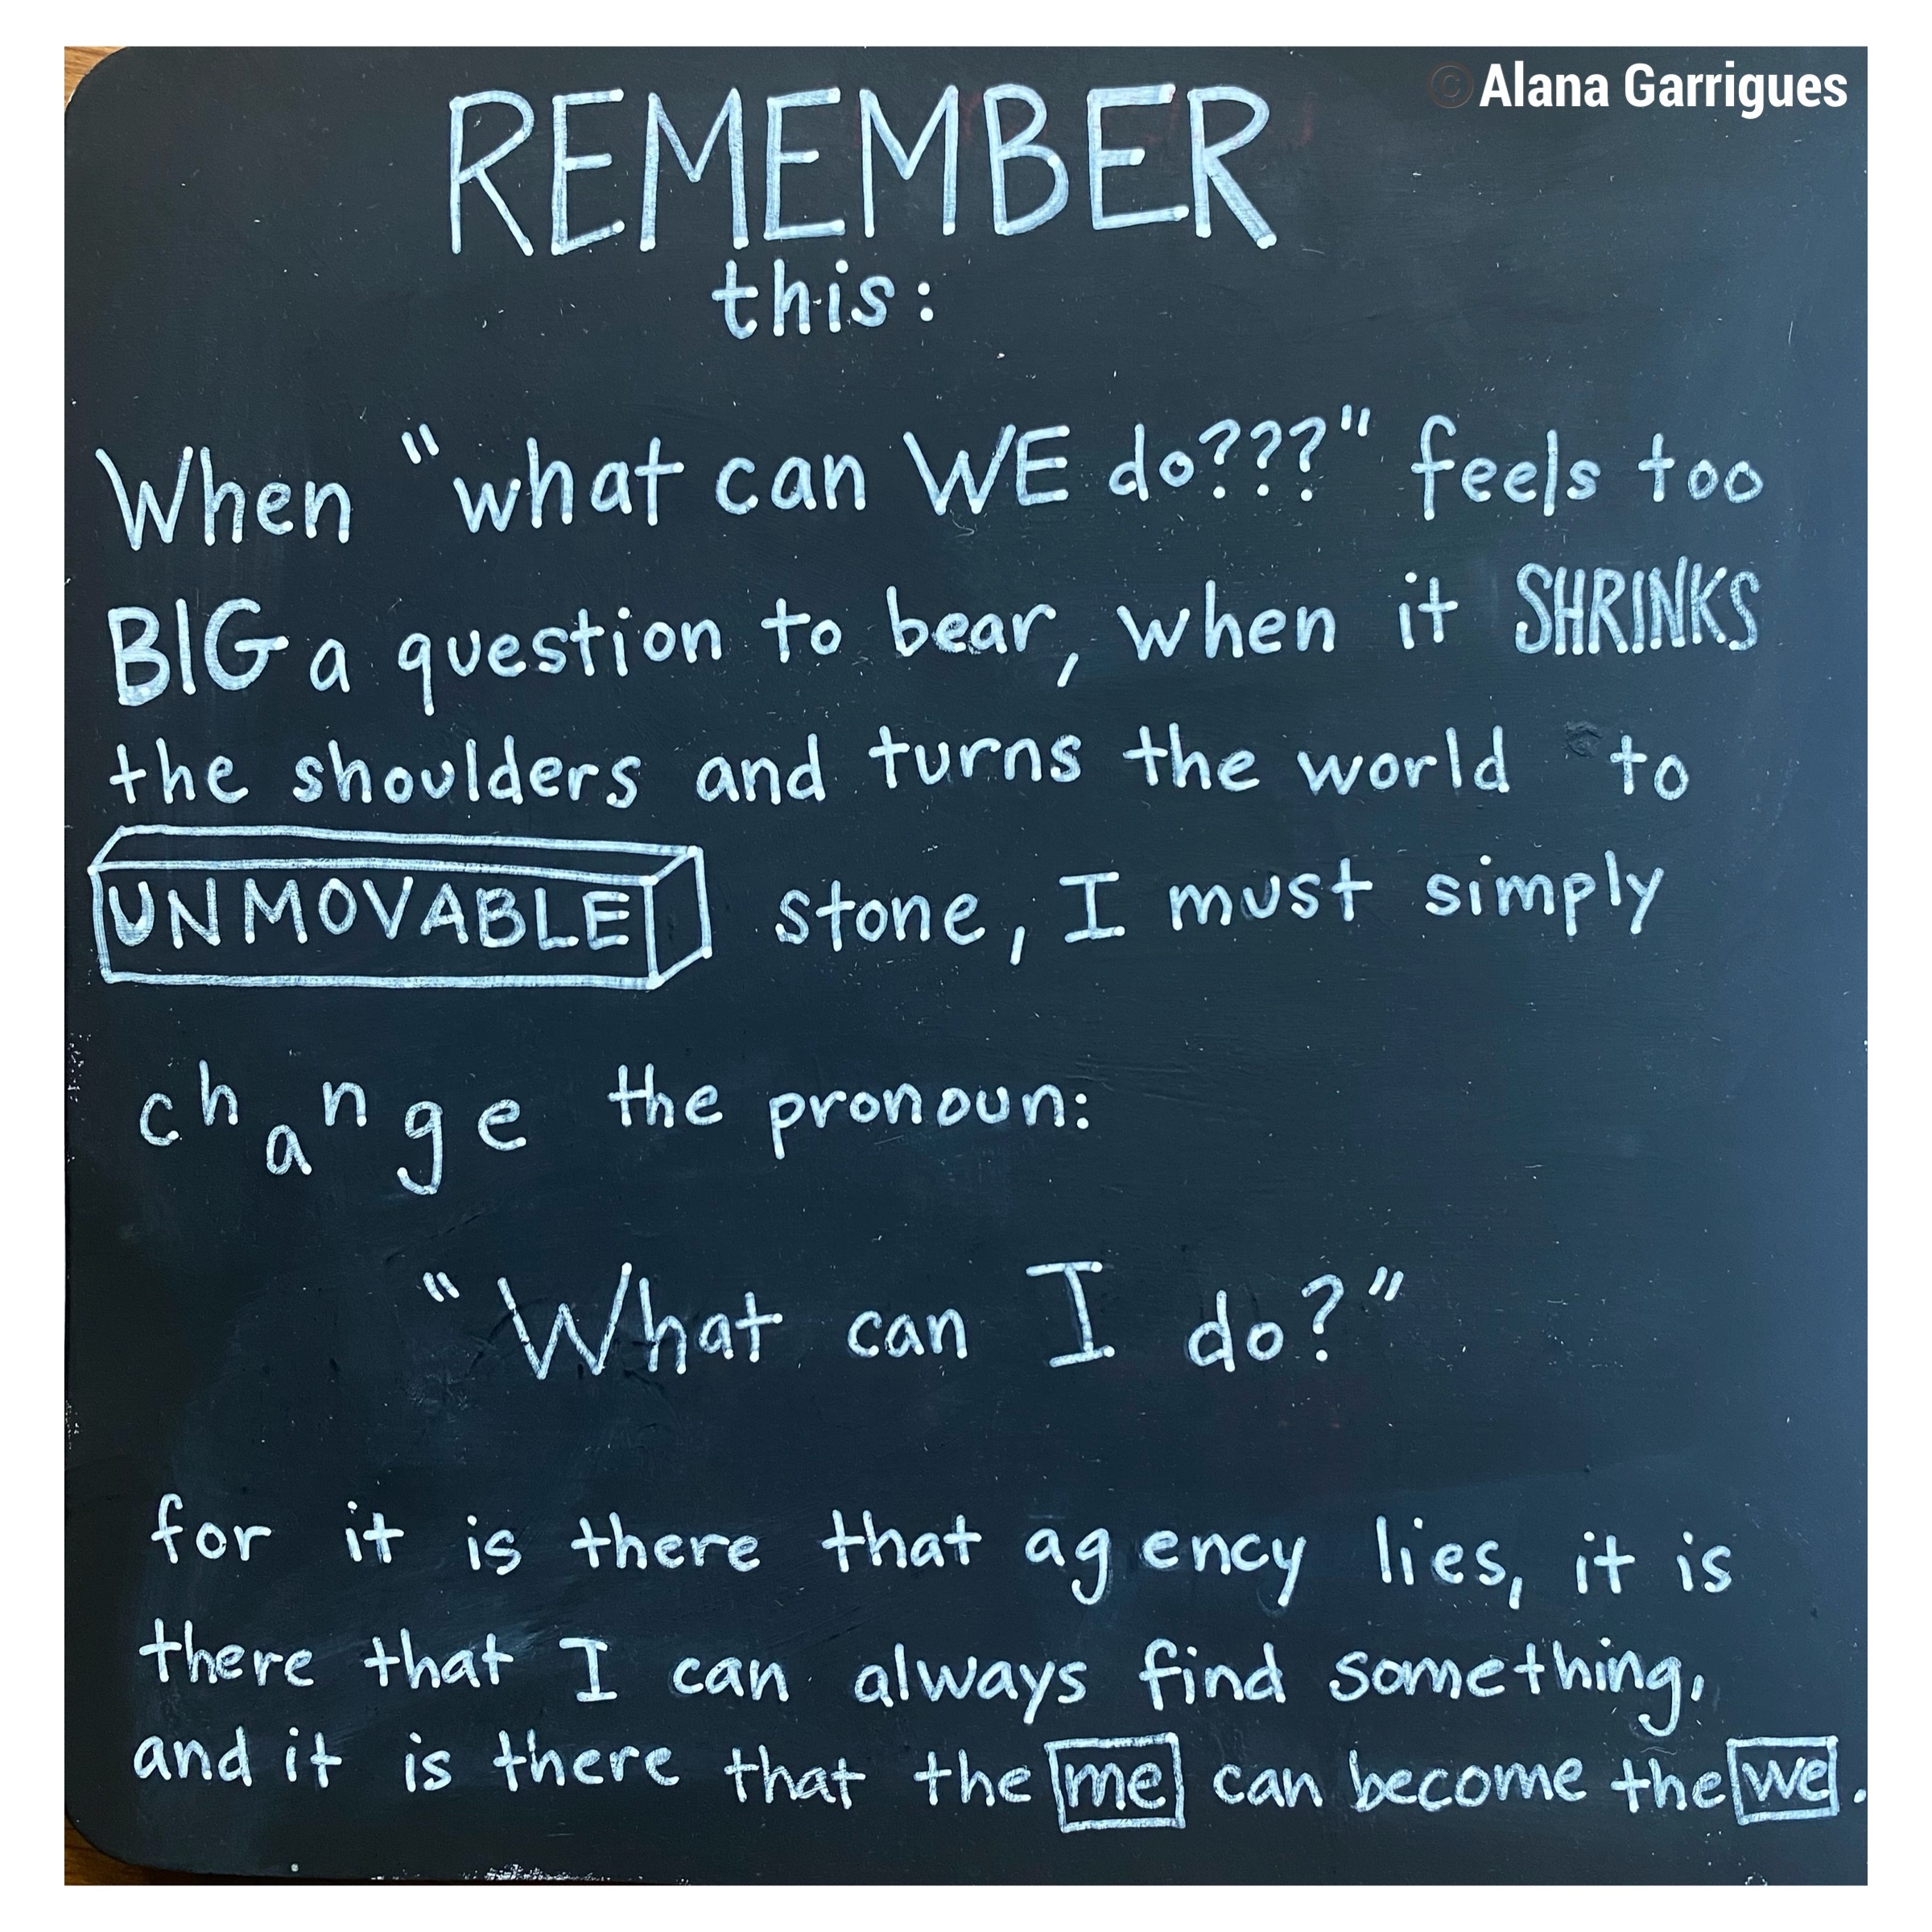 © Alana Garrigues
REMEMBER
this:
When "what can WE do???" feels too
BIG a question to bear, when it SHRINKS
the shoulders and turns the world to
UNMOVABLE stone, I must simply
change the pronoun:
"What can I do?"
for it is there that agency lies, it is
there that I can always find something,
and it is there that the me can become the we.